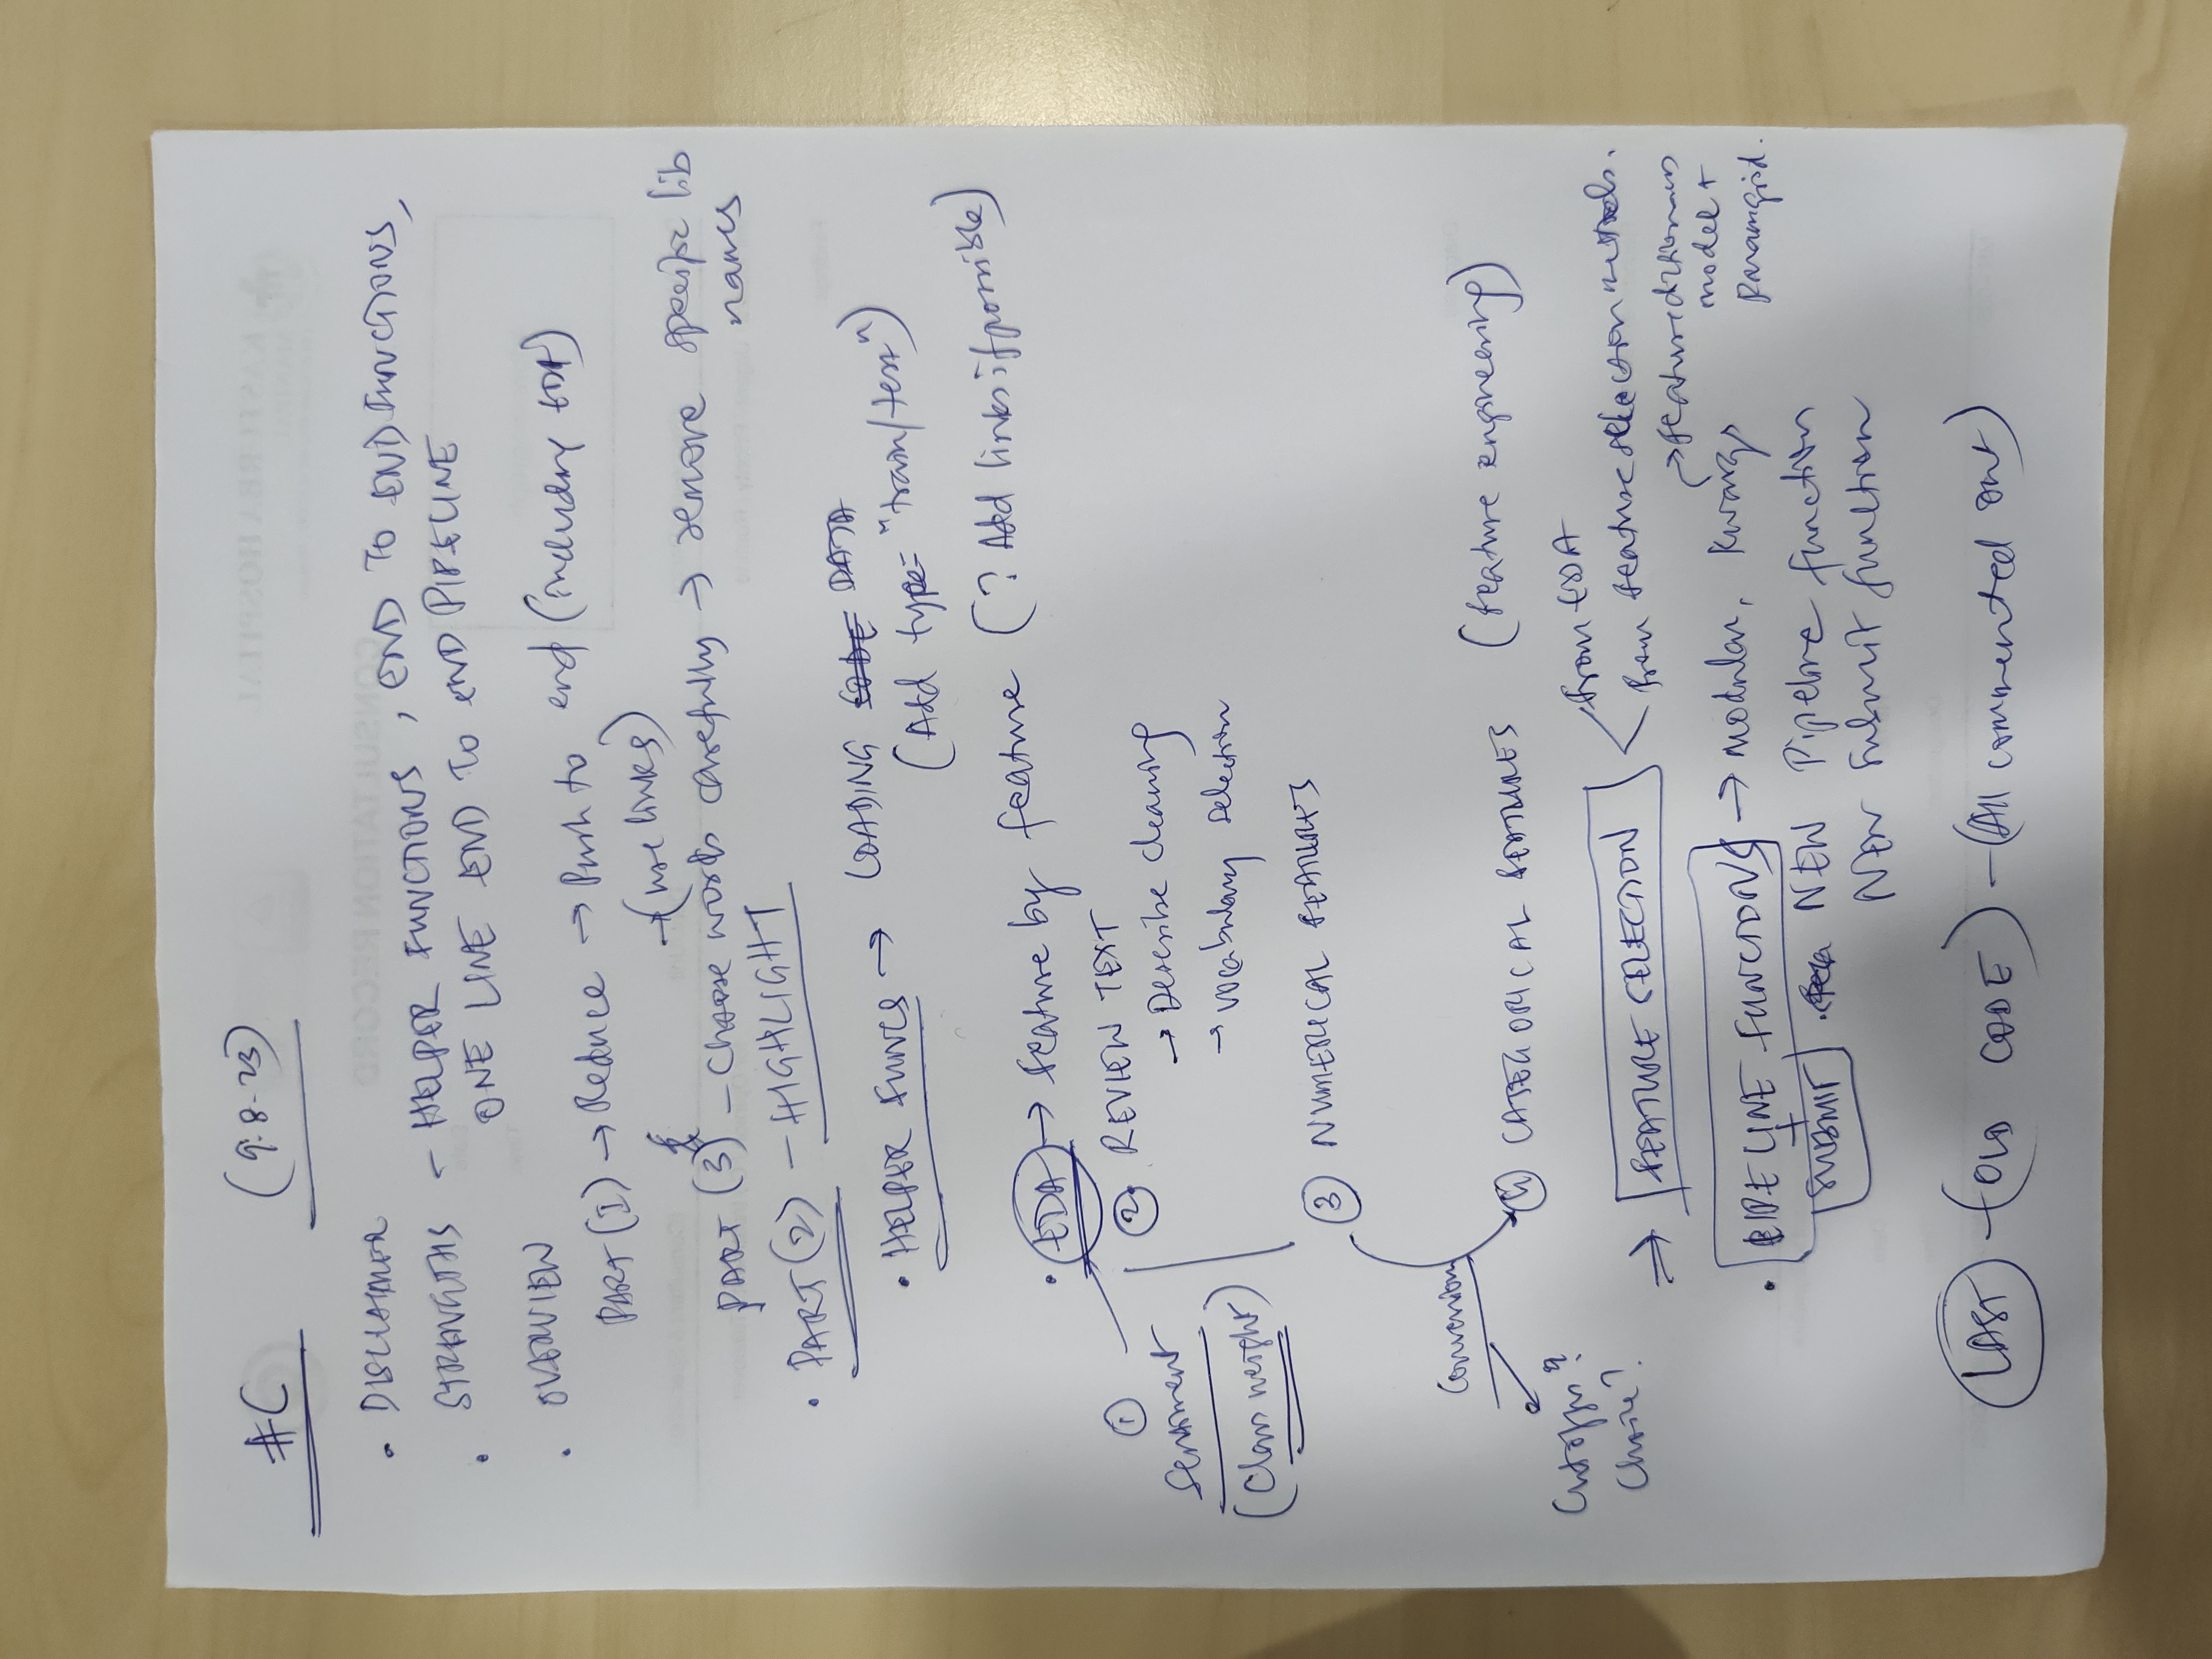 #C (9.8.23)
• DISCLAIMER
• STRENGTHS – HELPER FUNCTIONS, END TO END FUNCTIONS,
ONE LINE END TO END PIPELINE
• OVERVIEW
PART (I) → Reduce → Push to end (including EDA)
→ (use links)
PART (3) – Choose words carefully → remove specific lib
names
• PART (2) – HIGHLIGHT
• HELPER FUNCS → LOADING CODE DATA
(Add type= "train/test")
• EDA → feature by feature (? Add links if possible)
① Sentiment
(Class weight)
② REVIEW TEXT
→ Describe cleaning
→ vocabulary selection
③ NUMERICAL FEATURES
Conversion
Cutoffs?
Choice?
④ CATEGORICAL FEATURES (feature engineering)
⇒ FEATURE SELECTION
from EDA
from feature selection methods.
• PIPELINE FUNCTIONS → modular, Kwargs
→ feature dictionaries
model +
Paramgrid.
+
SUBMIT • NEW Pipeline function
NEW Submit function
LAST – (OLD CODE) – (All commented out)
KASTURBA HOSPITAL
MANIPAL
CONSULTATION RECORD